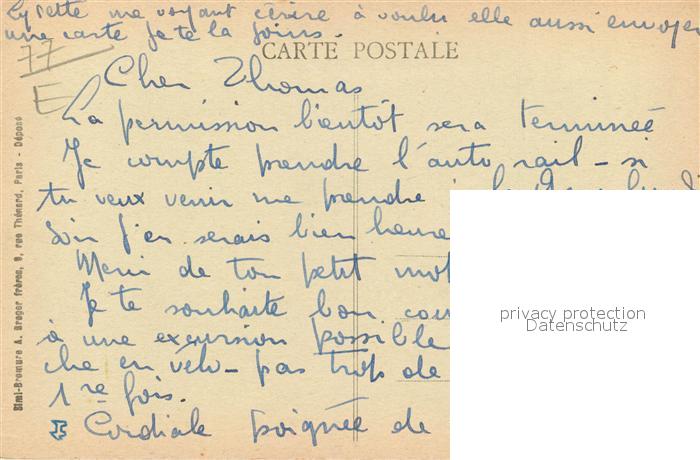 Lysette me voyant écrire à voulu elle aussi envoyer
une carte je te la joins.
CARTE POSTALE
77
E
Cher Thomas
La permission bientôt sera terminée
Je compte prendre l'auto rail - si
tu veux venir me prendre
soir j'en serais bien heure
Merci de ton petit mot
Je te souhaite bon cou
à une excursion possible
che en vélo - pas trop de
1re fois.
Cordiale poignée de
Simi-Bromure A. Breger frères, 9, rue Thénard, Paris - Déposé
privacy protection
Datenschutz